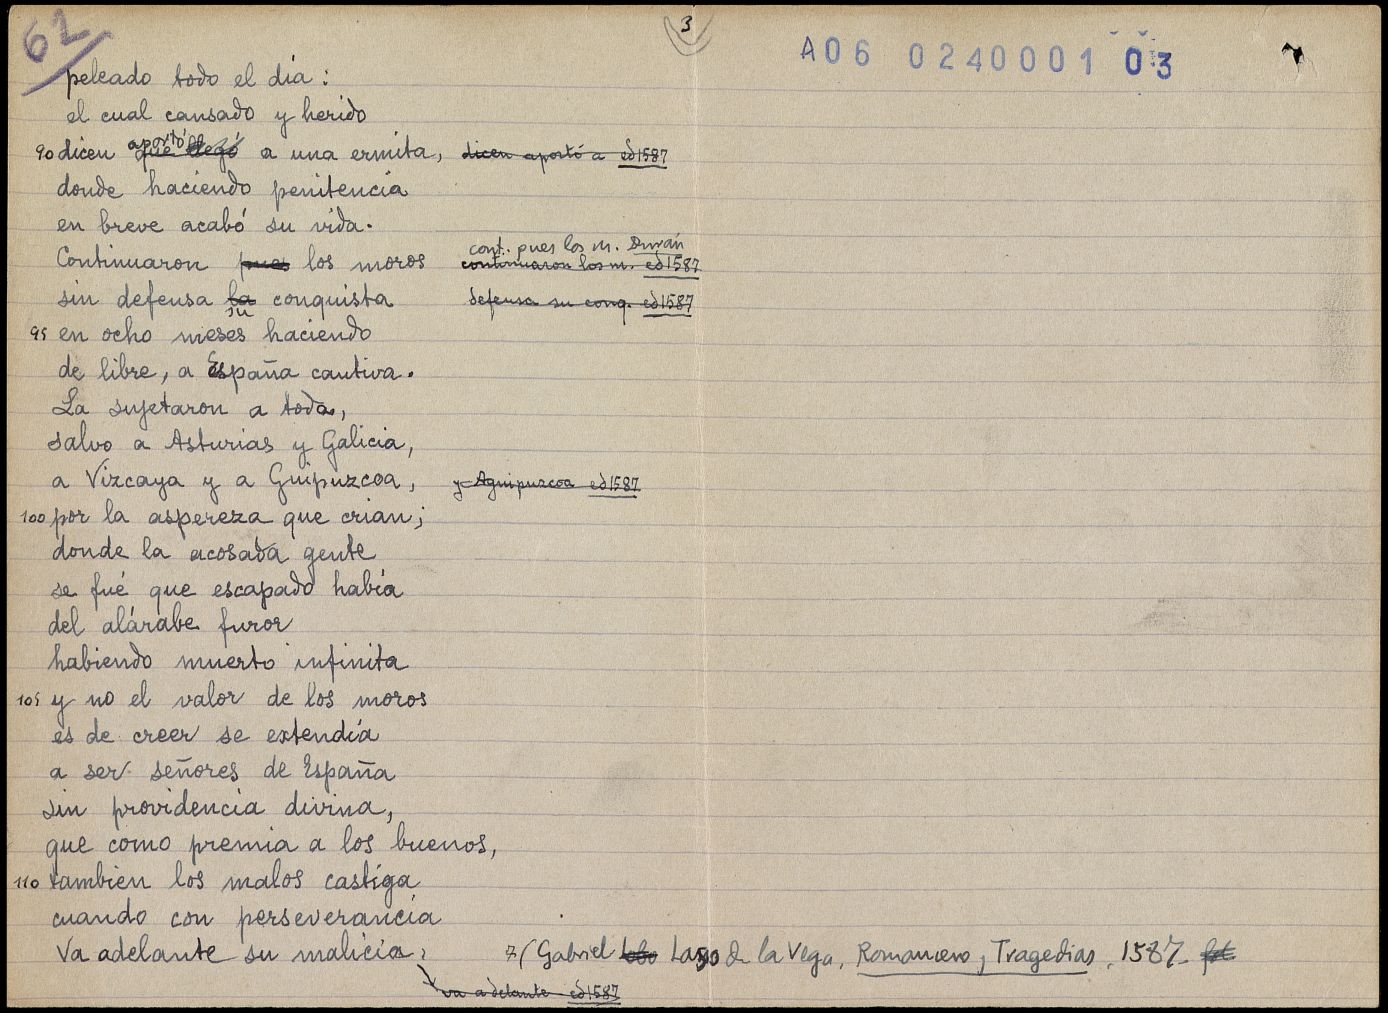 62
3
A06 0240001 03
peleado todo el día:
el cual cansado y herido
90 dicen aportó que llegó a una ermita, dicen aportó a ed 1587
donde haciendo penitencia
en breve acabó su vida.
cont. pues los m. Durán
Continuaron pues los moros continuaron los m. ed 1587
sin defensa la su conquista defensa su conq. ed 1587
95 en ocho meses haciendo
de libre, a España cautiva.
La sujetaron a toda,
salvo a Asturias y Galicia,
a Vizcaya y a Guipuzcoa, y Aguipuzcoa ed 1587
100 por la aspereza que crian;
donde la acosada gente
se fué que escapado había
del alárabe furor
habiendo muerto infinita
105 y no el valor de los moros
es de creer se extendía
a ser señores de España
sin providencia divina,
que como premia a los buenos,
110 tambien los malos castiga
cuando con perseverancia
va adelante su malicia. (Gabriel Lobo Laso de la Vega, Romancero y Tragedias, 1587.
va adelante ed 1587